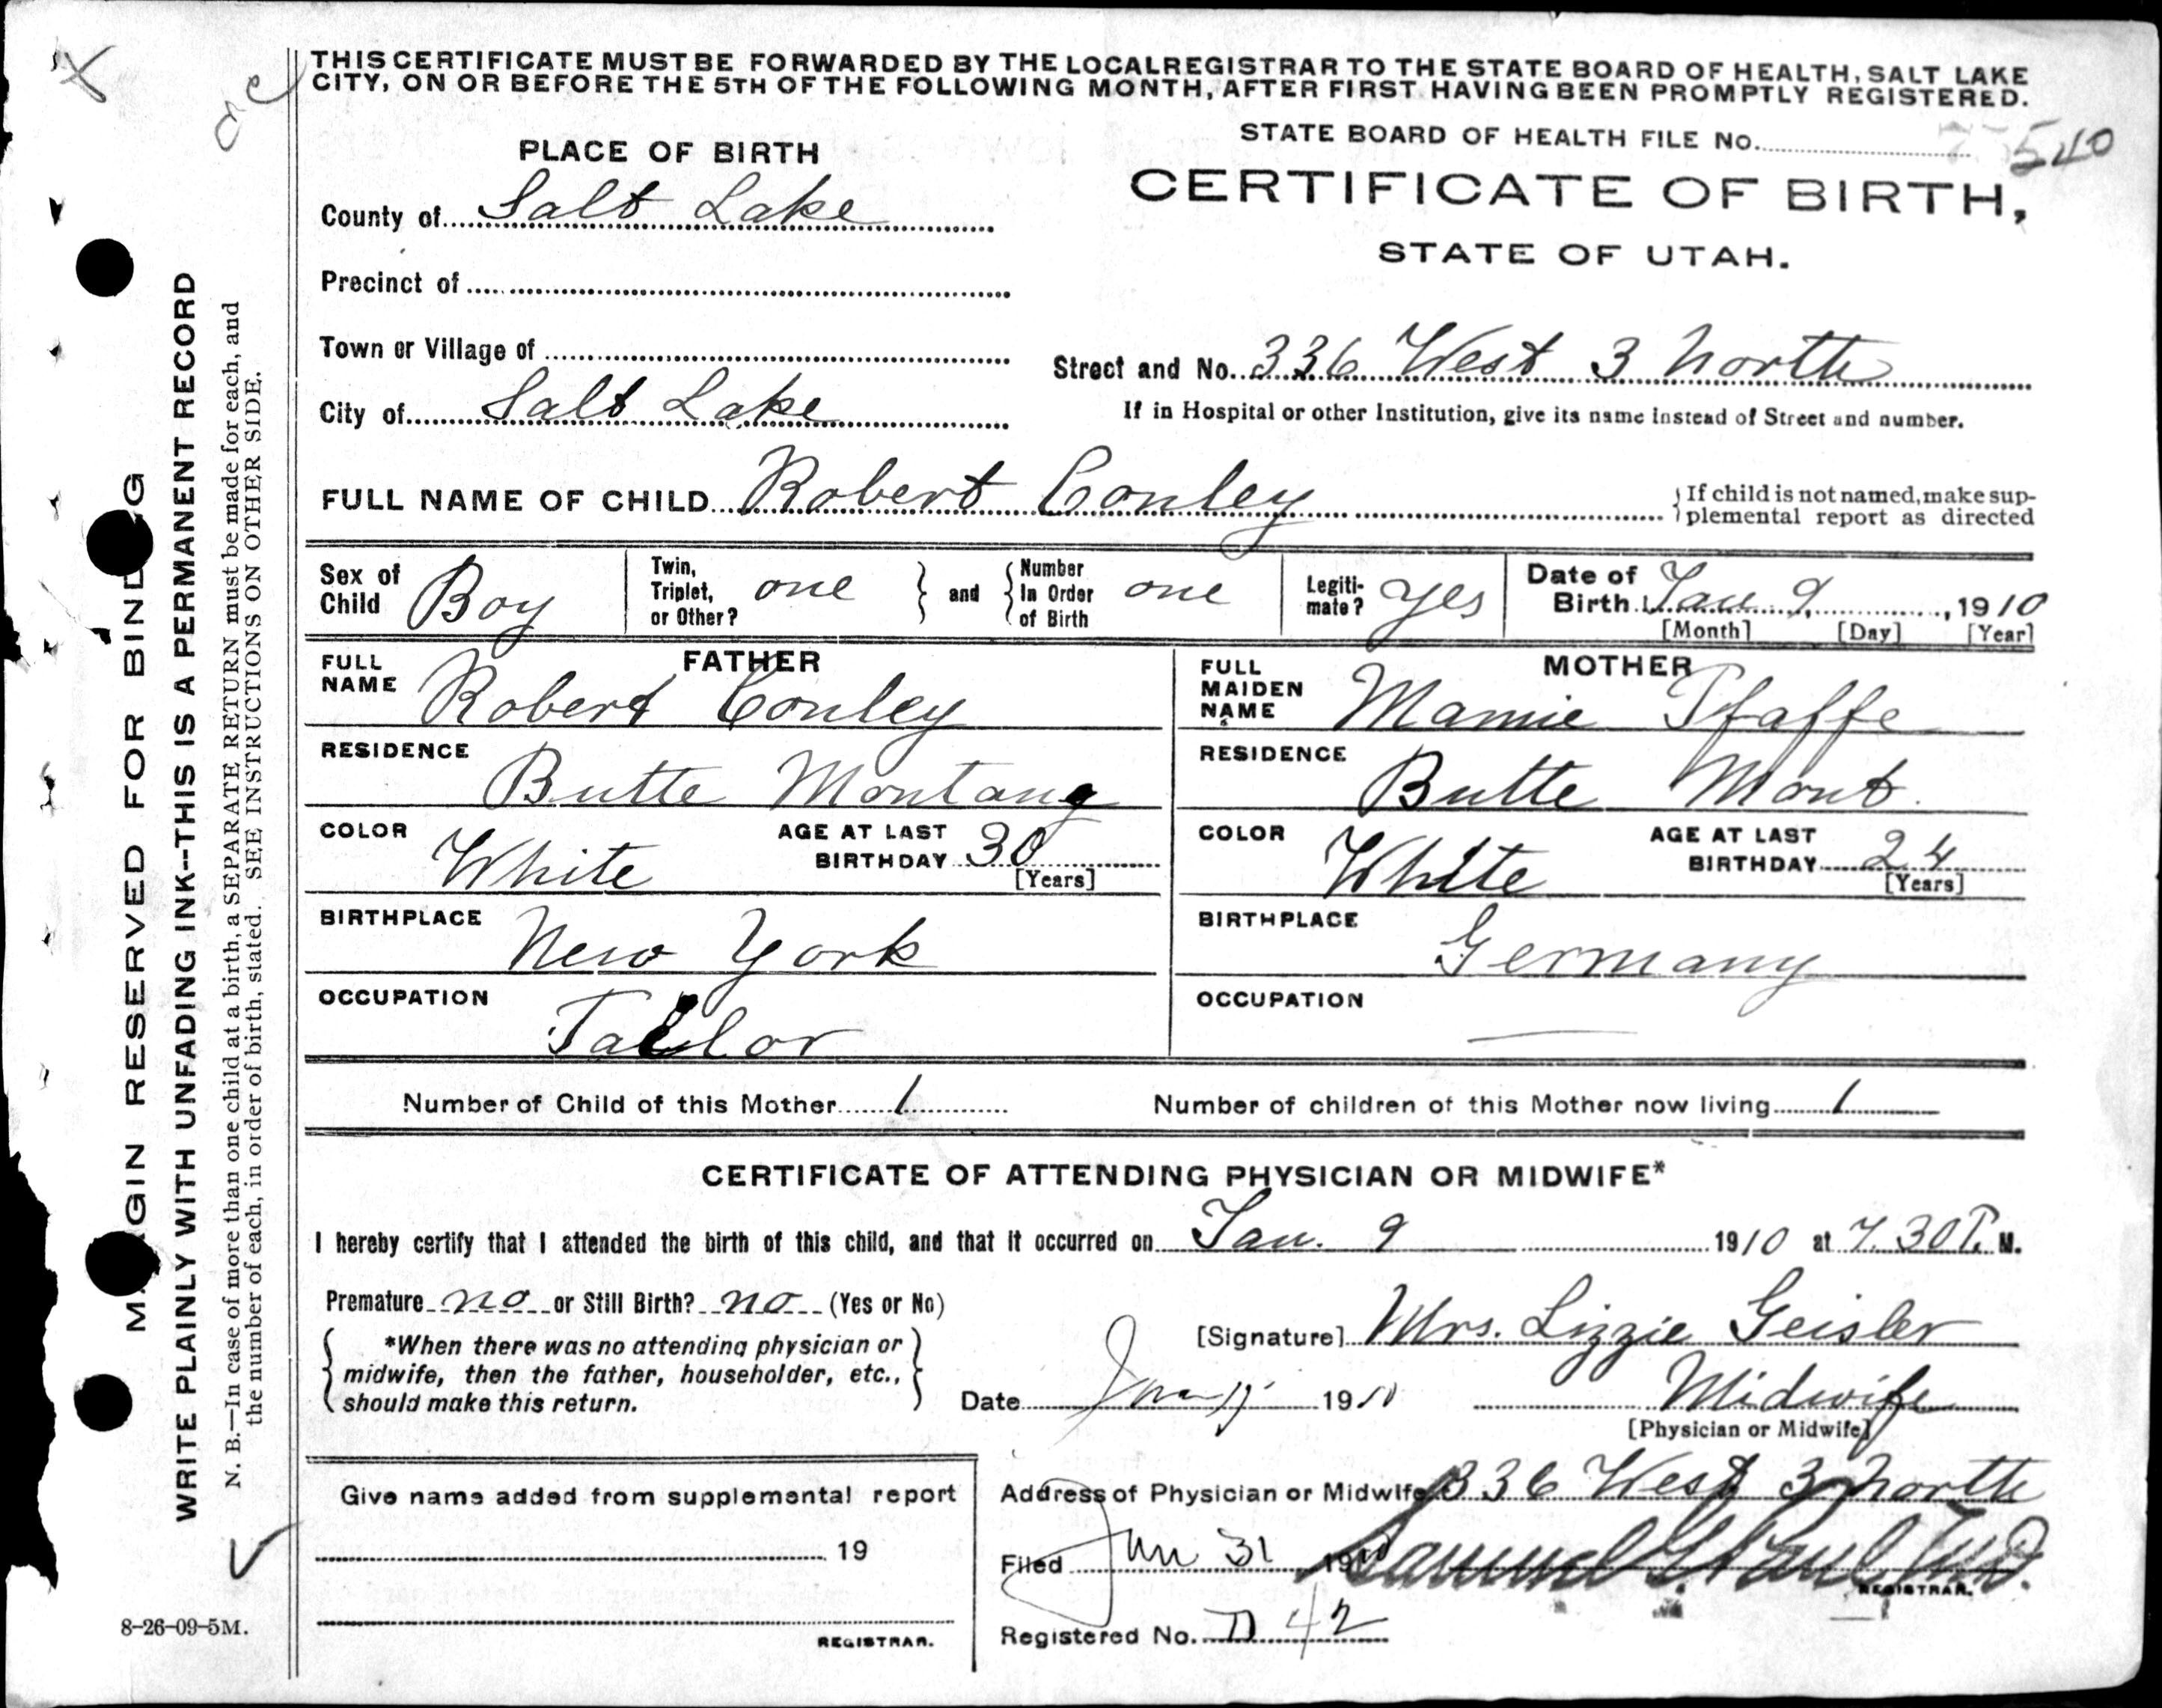 THIS CERTIFICATE MUST BE FORWARDED BY THE LOCAL REGISTRAR TO THE STATE BOARD OF HEALTH, SALT LAKE
CITY, ON OR BEFORE THE 5TH OF THE FOLLOWING MONTH, AFTER FIRST HAVING BEEN PROMPTLY REGISTERED.
STATE BOARD OF HEALTH FILE No. 540
PLACE OF BIRTH
CERTIFICATE OF BIRTH,
STATE OF UTAH.
County of Salt Lake
Precinct of
Town or Village of
Street and No. 336 West 3 North
City of Salt Lake
If in Hospital or other Institution, give its name instead of Street and number.
FULL NAME OF CHILD Robert Conley
If child is not named, make sup-
plemental report as directed
Sex of Child Boy
Twin, Triplet, or Other? one
and
Number In Order of Birth one
Legiti-
mate? Yes
Date of Birth Jan 9, 1910
[Month] [Day] [Year]
FATHER
FULL NAME Robert Conley
RESIDENCE Butte Montana
COLOR White
AGE AT LAST BIRTHDAY 30
[Years]
BIRTHPLACE New York
OCCUPATION Tailor
MOTHER
FULL MAIDEN NAME Mamie Pfaffe
RESIDENCE Butte Mont.
COLOR White
AGE AT LAST BIRTHDAY 24
[Years]
BIRTHPLACE Germany
OCCUPATION —
Number of Child of this Mother 1
Number of children of this Mother now living 1
CERTIFICATE OF ATTENDING PHYSICIAN OR MIDWIFE*
I hereby certify that I attended the birth of this child, and that it occurred on Jan. 9 1910 at 7.30 P. M.
Premature no or Still Birth? no (Yes or No)
*When there was no attending physician or
midwife, then the father, householder, etc.,
should make this return.
[Signature] Mrs. Lizzie Geisler
Date 1910
Midwife
[Physician or Midwife]
Address of Physician or Midwife 336 West 3 North
Give name added from supplemental report
19
REGISTRAR.
Filed Jan 31 1910
REGISTRAR.
Registered No. 42
8-26-09-5M.
MARGIN RESERVED FOR BINDING
WRITE PLAINLY WITH UNFADING INK--THIS IS A PERMANENT RECORD
N. B.—In case of more than one child at a birth, a SEPARATE RETURN must be made for each, and
the number of each, in order of birth, stated. SEE INSTRUCTIONS ON OTHER SIDE.